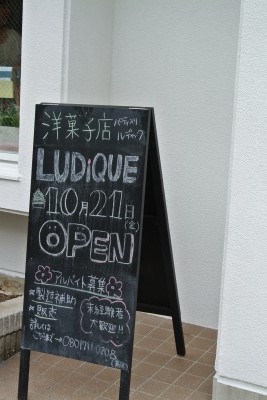 洋菓子店 パティスリー ルディック
LUDiQUE
10月21日(金)
OPEN
アルバイト募集
製造補助
販売
未経験者
大歓迎!!
詳しくは